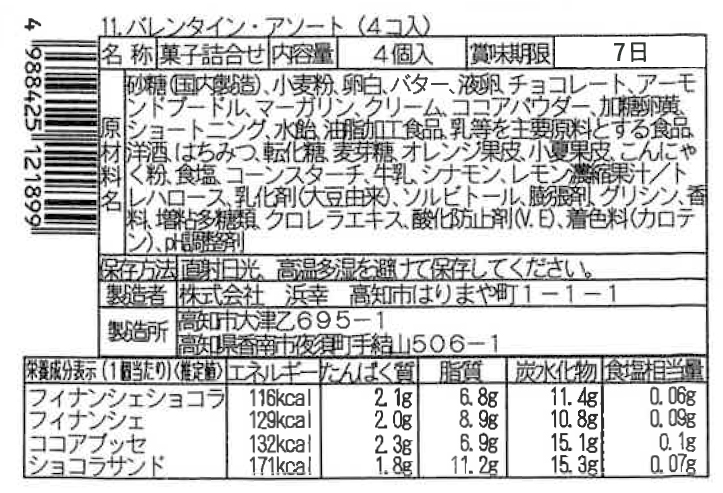 11.バレンタイン・アソート(4コ入)
名称 菓子詰合せ 内容量 4個入 賞味期限 7日
原材料名
砂糖(国内製造)、小麦粉、卵白、バター、液卵、チョコレート、アーモ
ンドプードル、マーガリン、クリーム、ココアパウダー、加糖卵黄、
ショートニング、水飴、油脂加工食品、乳等を主要原料とする食品、
洋酒、はちみつ、転化糖、麦芽糖、オレンジ果皮、小夏果皮、こんにゃ
く粉、食塩、コーンスターチ、牛乳、シナモン、レモン濃縮果汁/ト
レハロース、乳化剤(大豆由来)、ソルビトール、膨張剤、グリシン、香
料、増粘多糖類、クロレラエキス、酸化防止剤(V.E)、着色料(カロテ
ン)、pH調整剤
保存方法 直射日光、高温多湿を避けて保存してください。
製造者 株式会社 浜幸 高知市はりまや町1-1-1
製造所 高知市大津乙695-1
高知県香南市夜須町手結山506-1
栄養成分表示(1個当たり)(推定値) エネルギー たんぱく質 脂質 炭水化物 食塩相当量
フィナンシェショコラ 116kcal 2.1g 6.8g 11.4g 0.06g
フィナンシェ 129kcal 2.0g 8.9g 10.8g 0.09g
ココアブッセ 132kcal 2.3g 6.9g 15.1g 0.1g
ショコラサンド 171kcal 1.8g 11.2g 15.3g 0.07g
4 988425 121899